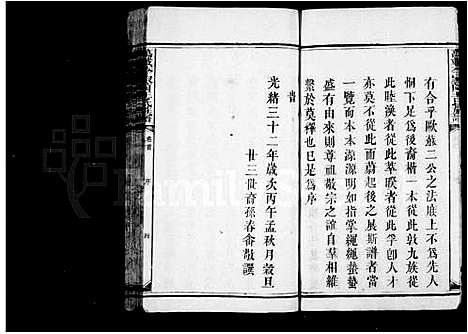 有合乎歐蘇二公之法庶上不爲先人
恫下足爲後裔楷一本從此敦九族從
此睦漢者從此萃暌者從此孚卽人才
亦莫不從此而蔚起後之展斯譜者當
一覽而本本源源明如指掌繩繩蟄蟄
盛有由來則尊祖敬宗之誼自羣相維
繫於莫禪也已是爲序
旹
光緒三十二年歲次丙午孟秋月穀旦
廿三世裔孫春畬敬譔
卷首
序